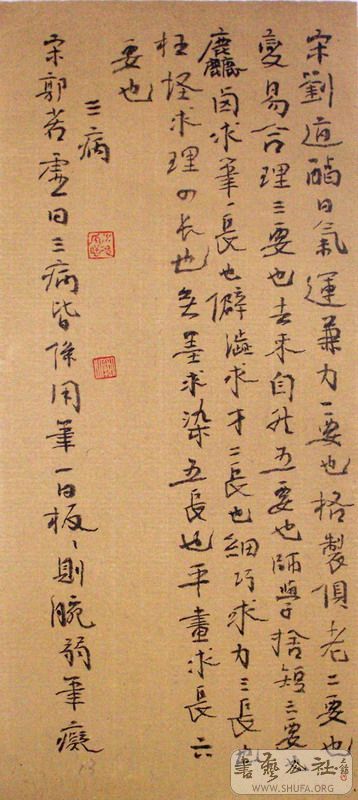 宋劉道醇曰氣運兼力一要也格製俱老二要也
變易合理三要也去来自然五要也師學捨短三要也
麤鹵求筆一長也僻澁求才二長也細巧求力三長也
狂怪求理四長也無墨求染五長也平畫求長六
要也
三病
宋郭若虛曰三病皆係用筆一曰板板則腕弱筆癡
書艺公社
WWW.SHUFA.ORG